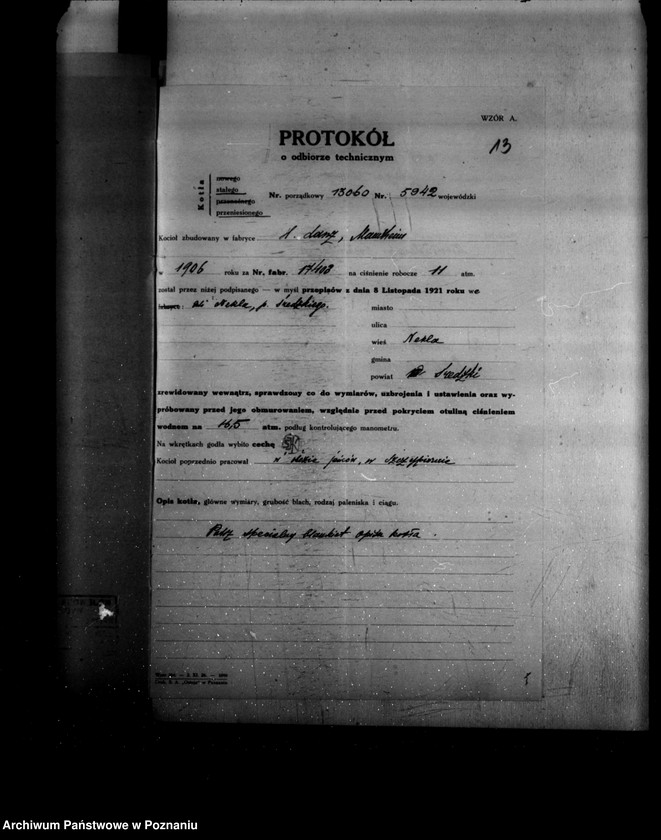 WZÓR A.
13
PROTOKÓŁ
o odbiorze technicznym
Kotła
nowego
stałego
przenośnego
przeniesionego
Nr. porządkowy 13060 Nr. 5942 wojewódzki
Kocioł zbudowany w fabryce H. Lanz, Mannheim
w 1906 roku za Nr. fabr. 17403 na ciśnienie robocze 11 atm.
został przez niżej podpisanego — w myśl przepisów z dnia 8 Listopada 1921 roku we
Nekla, p. Średzkiego.
miasto
ulica
wieś Nekla
gmina
powiat Średzki
zrewidowany wewnątrz, sprawdzony co do wymiarów, uzbrojenia i ustawienia oraz wy-
próbowany przed jego obmurowaniem, względnie przed pokryciem otuliną ciśnieniem
wodnem na 16,5 atm. podług kontrolującego manometru.
Na wkrętkach godła wybito cechę
Kocioł poprzednio pracował w w Szczypiornie
Opis kotła, główne wymiary, grubość blach, rodzaj paleniska i ciągu.
Patrz specjalny blankiet opisu kotła.
Archiwum Państwowe w Poznaniu